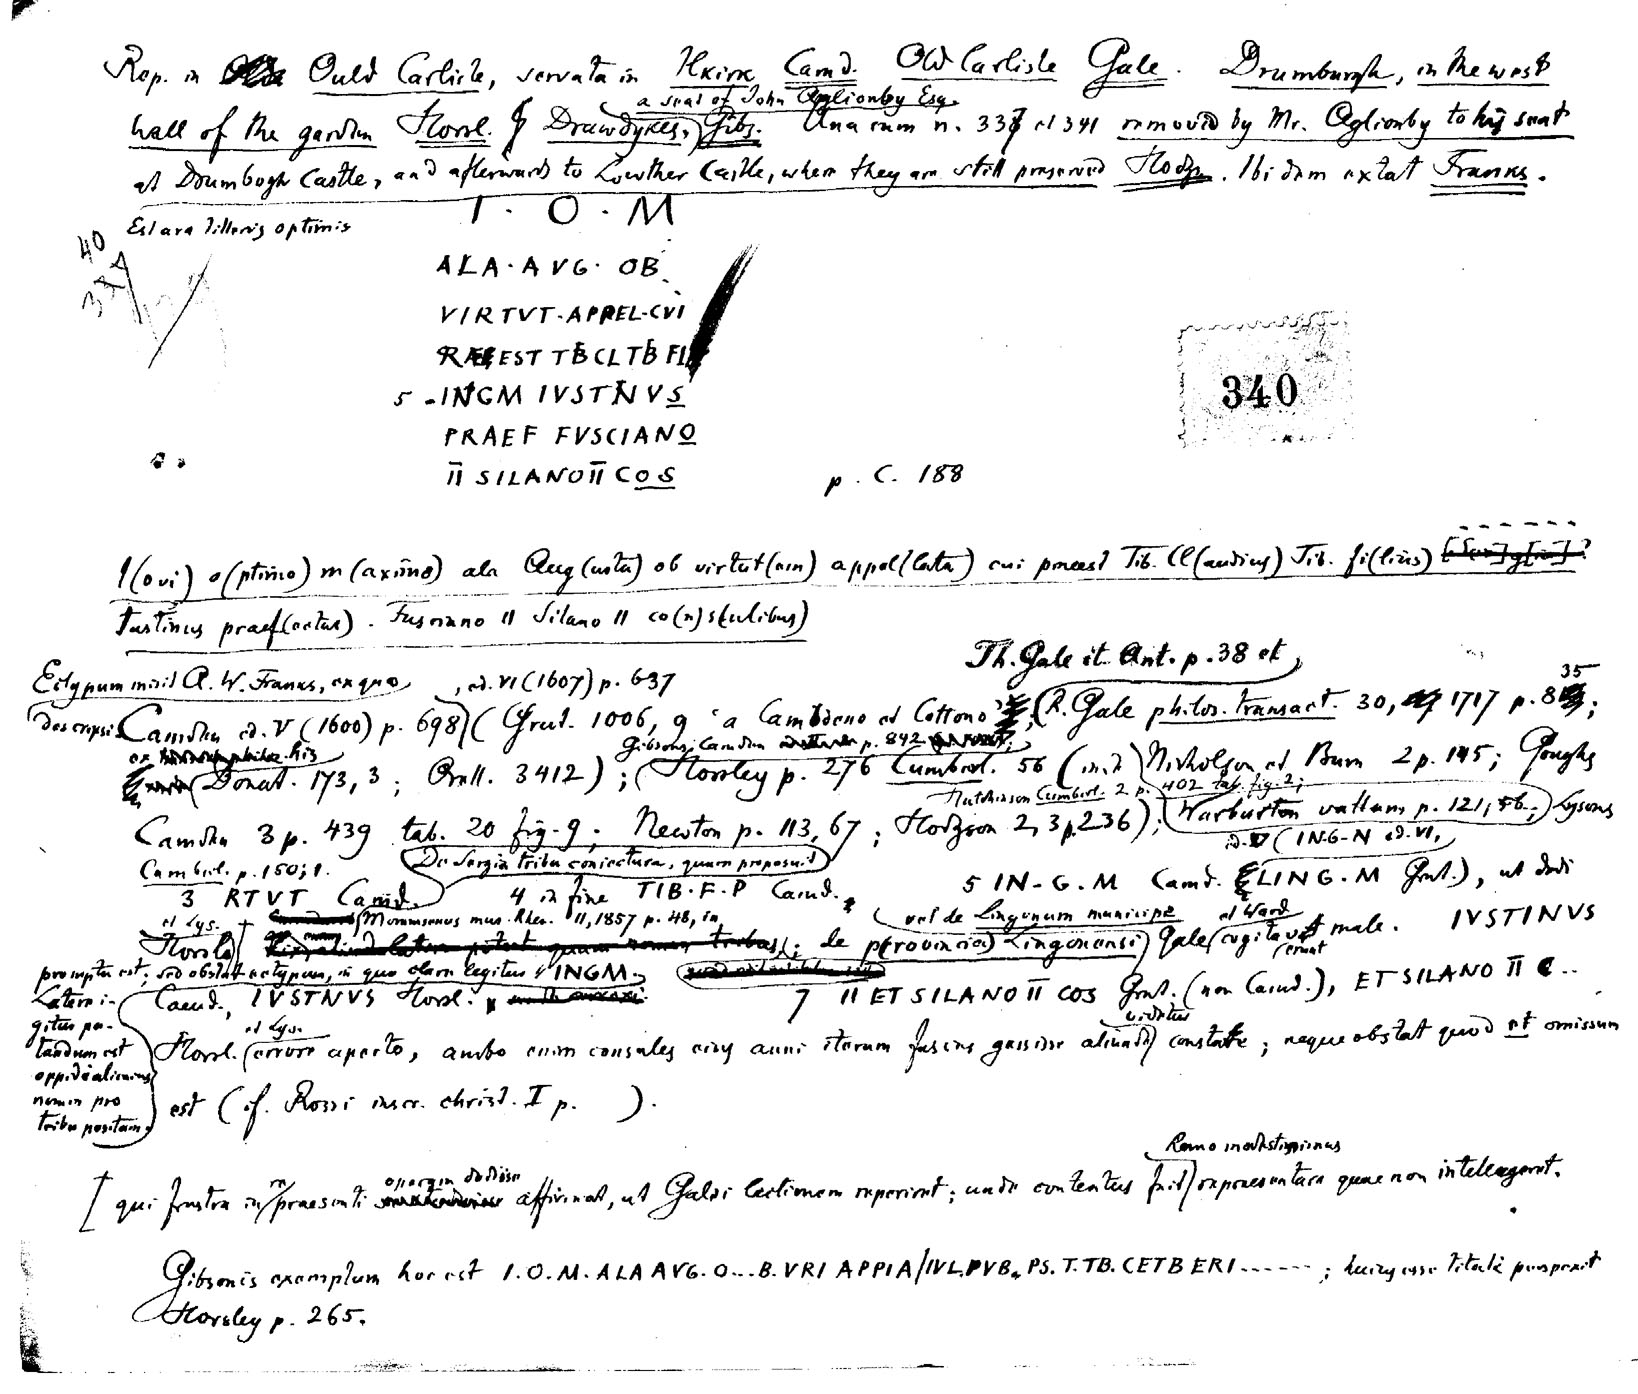 Rep. in Ould Carlisle, servata in Ilkirk Camd. Old Carlisle Gale. Drumburgh, in the west
a seat of John Aglionby Esq.
wall of the garden Horsl. Drawdykes, Gibs. Una cum n. 338 et 341 removed by Mr. Aglionby to his seat
at Drumbogh Castle, and afterwards to Lowther Castle, where they are still preserved Hodgs. Ibidem extat Franks.
Est ara litteris optimis
I · O · M
40
ALA · AVG · OB
VIRTVT · APPEL · CVI
PRAEEST TBCLTB FI
5 INGM IVSTNVS
PRAEF FVSCIANO
II SILANO II COS
340
p. C. 188
I(ovi) o(ptimo) m(aximo) ala Aug(usta) ob virtut(em) appel(lata) cui praeest Tib. Cl(audius) Tib. fi(lius)
Iustinus praef(ectus). Fusciano II Silano II co(n)s(ulibus)
Th. Gale it. Ant. p. 38 et
Ectypum misit A. W. Franks, ex quo , ed. VI (1607) p. 637
35
descripsi. Camden ed. V (1600) p. 698 (Grut. 1006, 9 'a Camdeno et Cottono'; R. Gale philos. transact. 30, 1717 p. 8 ;
ex his Gibsons Camden p. 842
(Donat. 173, 3; Orell. 3412); Horsley p. 276 Cumberl. 56 (inde Nicholson et Burn 2 p. 145; Goughs
Hutchinson Cumberl. 2 p. 402 tab. fig. 2;
Camden 3 p. 439 tab. 20 fig. 9; Newton p. 113, 67; Hodgson 2, 3 p. 236); Warburton vallum p. 121, 56; Lysons
Cumberl. p. 150; 1. De Sergia tribu coniectura, quam proposuit ed. V (IN·G·N ed. VI,
3 RTVT Camd. 4 in fine TIB·F·P Camd. 5 IN-G·M Camd. LING·M Grut.), ut dedi
et Lys. Mommsenus mus. Rhen. 11, 1857 p. 48, in vel de Lingonum municipe et Ward
Horsl. ; de p(rovincia) Lingonensi Gale cogitavit male. IVSTINVS
promptu est; sed obstat ectypum, in quo clare legitur INGM.
Camd., IVSTNVS Horsl. 7 II ET SILANO II COS Grut. (non Camd.), ET SILANO II C..
Latere i-
gitur pu-
tandum est
oppidi alicuius
nomen pro
tribu positum.
et Lys. videtur
Horsl. errore aperto, ambo enim consules eius anni iterum fasces gessisse aliunde constat; neque obstat quod et omissum
est (cf. Rossi inscr. christ. I p. ).
Homo modestissimus
operam dedisse
[qui frustra in praesenti affirmat, ut Galei lectionem reperiret; unde contentus fuit repraesentare quae non intellegeret.
Gibsonis exemplum hoc est I.O.M. ALA AVG. O...B. VRI APPIA/IVL.PVB. PS. T. TB. CETBERI ------ ; huius esse tituli perspexit
Horsley p. 265.